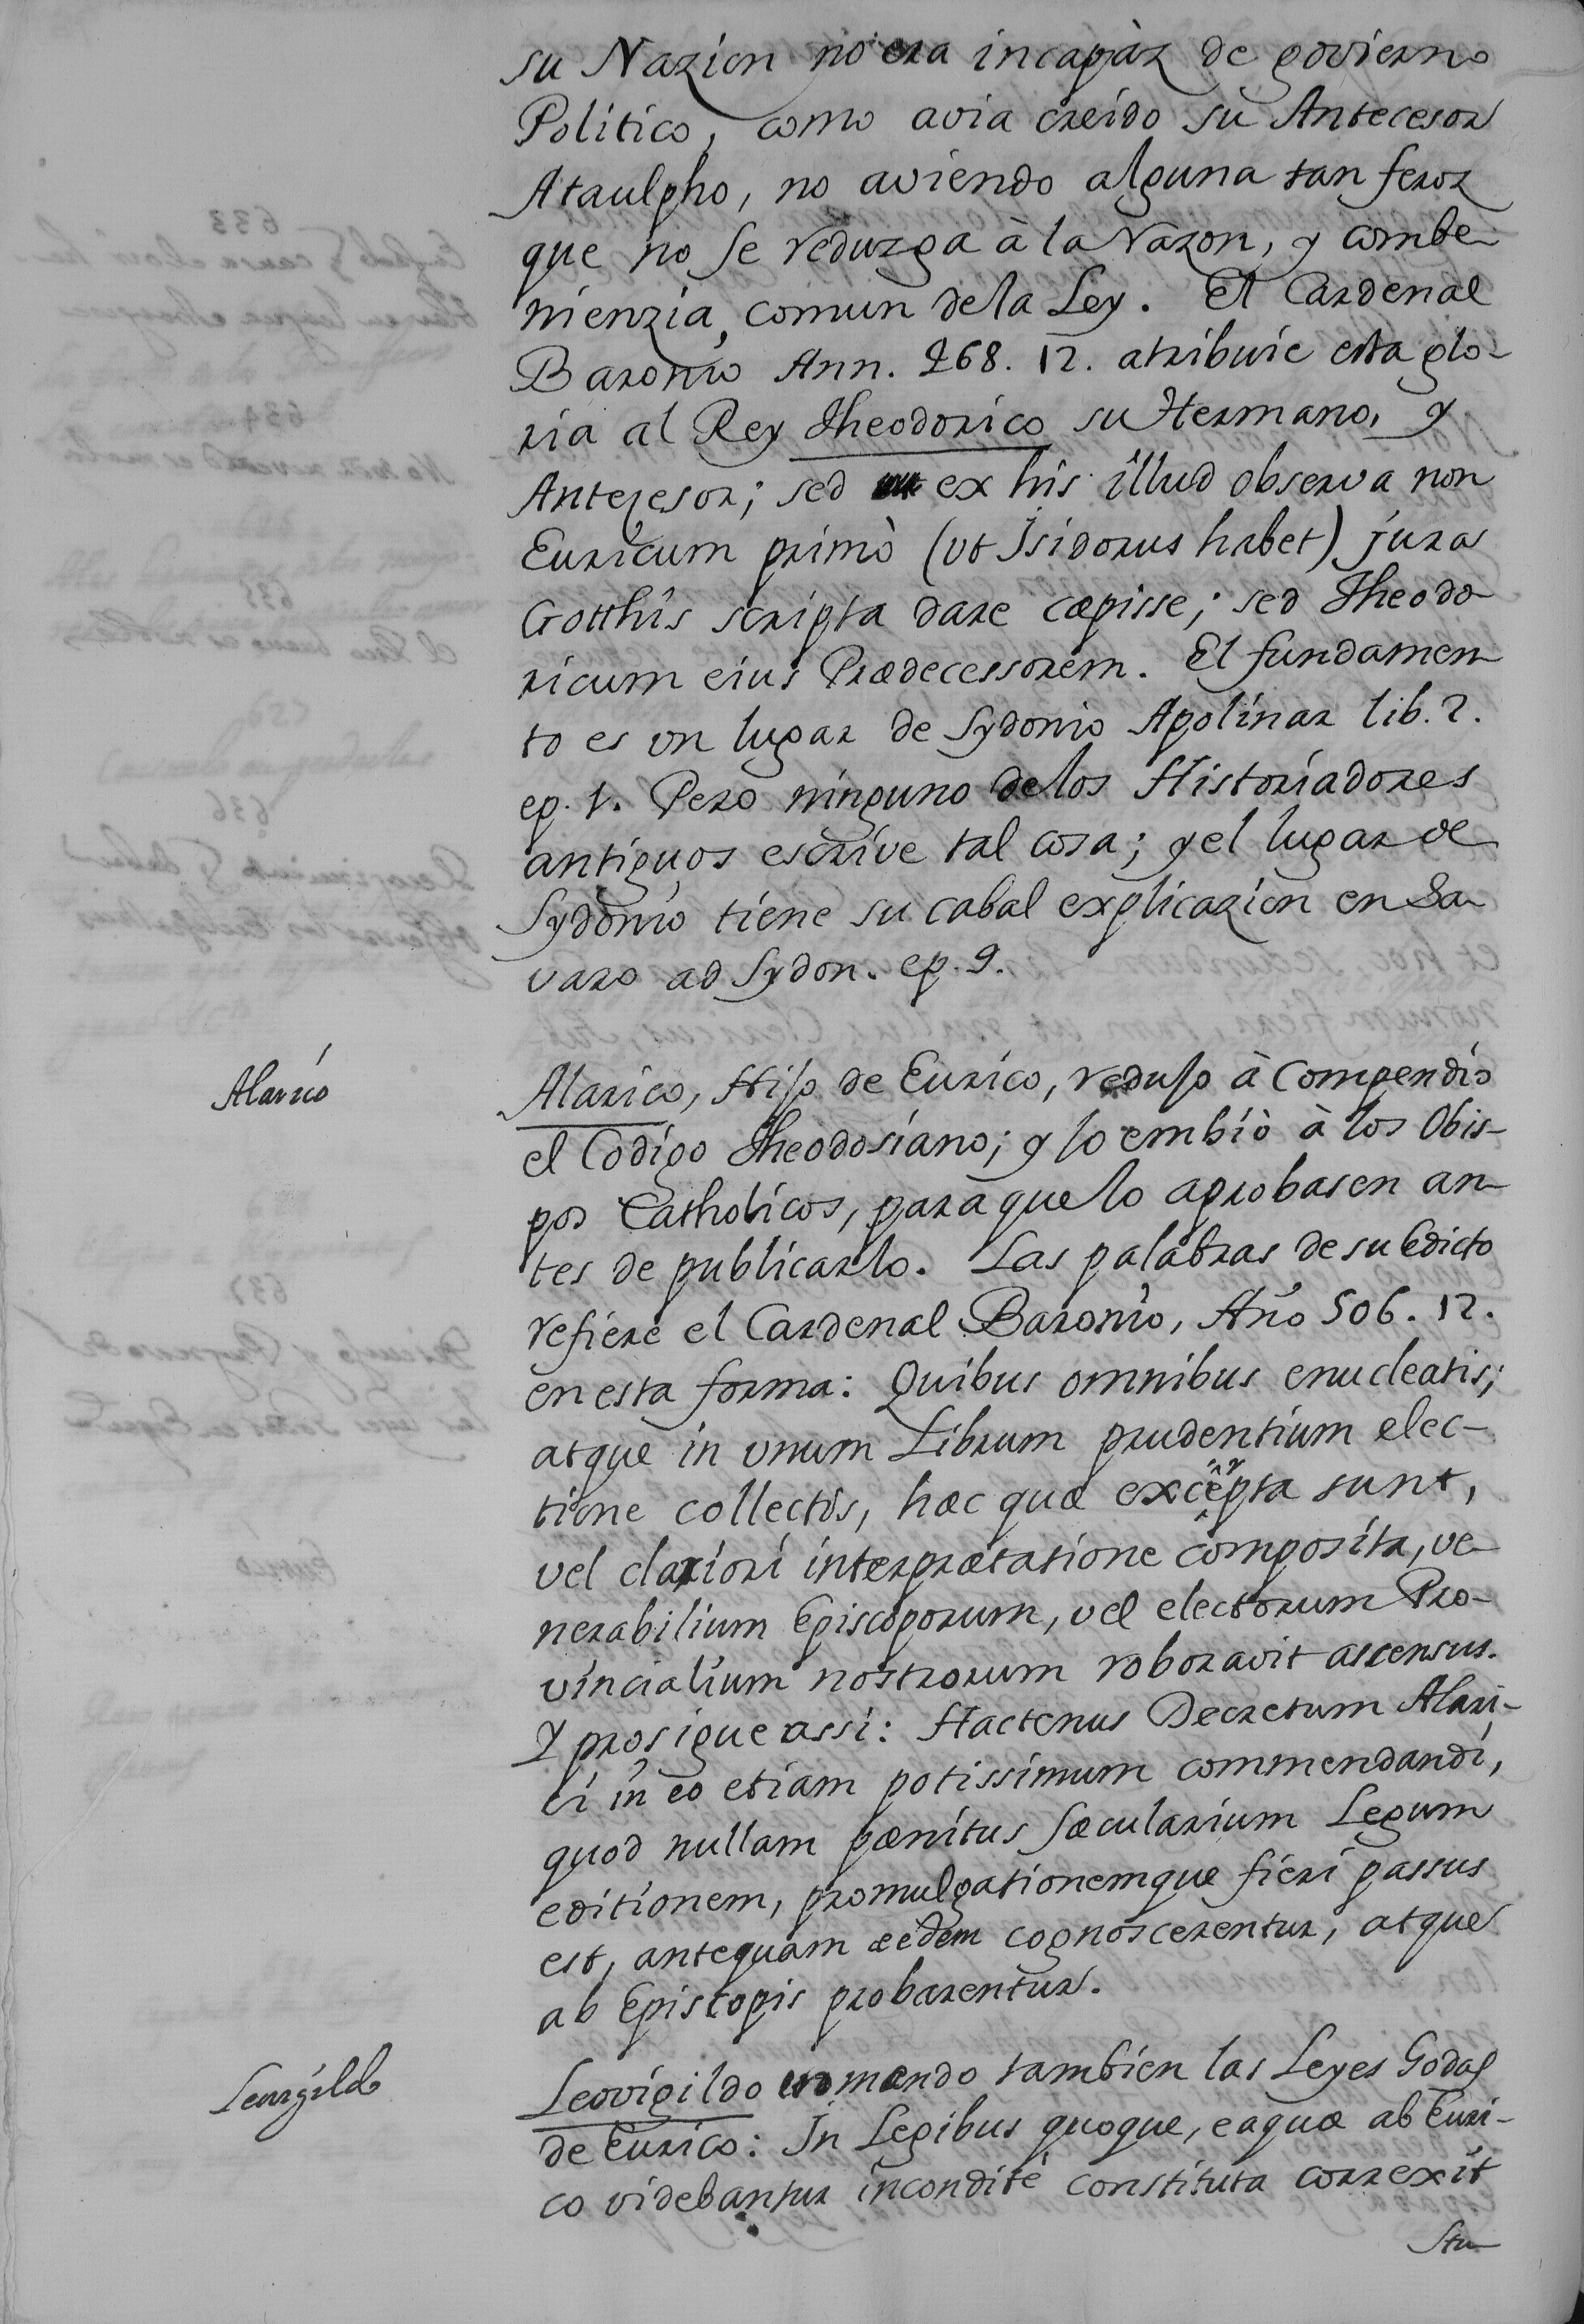 su Nazion no era incapàz de govierno
Politico, como avia creido su Antecesor
Ataulpho, no aviendo alguna tan feroz
que no se reduzga à la razon, y combe-
nienzia comun de la Ley. El Cardenal
Baronio Ann. 468. 12. atribuie esta glo-
ria al Rey Theodorico su Hermano, y
Antezesor; sed ex his illud observa non
Euricum primò (vt Isidorus habet) jura
Gotthis scripta dare cæpisse; sed Theodo-
ricum eius Prædecessorem. El fundamen-
to es vn lugar de Sydonio Apolinar lib. 2.
ep. 1. Pero ninguno de los Historiadores
antiguos escrive tal cosa; y el lugar de
Sydonio tiene su cabal explicazion en Sa-
varo ad Sydon. ep. 9.
Alarico
Alarico, Hijo de Eurico, redujo à Compendio
el Codigo Theodosiano; y lo embiò à los Obis-
pos Catholicos, para que lo aprobasen an-
tes de publicarlo. Las palabras de su Edicto
refiere el Cardenal Baronio, Año 506. 12.
en esta forma: Quibus omnibus enucleatis,
atque in vnum Librum prudentium elec-
tione collectis, hæc quæ excerpta sunt,
vel clariori interprætatione composita, ve-
nerabilium Episcoporum, vel electorum Pro-
vincialium nostrorum roboravit assensus.
Y prosigue assi: Hactenus Decretum Alari-
ci in eo etiam potissimum commendandi,
quod nullam pænitus Sæcularium Legum
editionem, promulgationemque fieri passus
est, antequam eædem cognoscerentur, atque
ab Episcopis probarentur.
Leovigildo
Leovigildo enmendo tambien las Leyes Godas
de Eurico: In Legibus quoque, ea quæ ab Euri-
co videbantur incondité constituta correxit